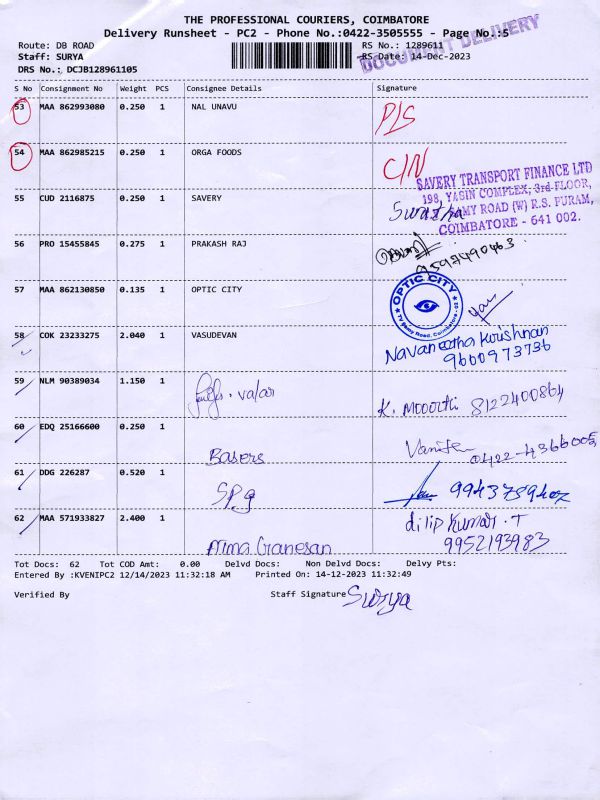 THE PROFESSIONAL COURIERS, COIMBATORE
Delivery Runsheet - PC2 - Phone No.:0422-3505555 - Page No.:5
DOCUMENT DELIVERY
Route: DB ROAD RS No.: 1289611
Staff: SURYA RS Date: 14-Dec-2023
DRS No.: DCJB128961105
S No Consignment No Weight PCS Consignee Details Signature
53 MAA 862993080 0.250 1 NAL UNAVU
54 MAA 862985215 0.250 1 ORGA FOODS
SAVERY TRANSPORT FINANCE LTD
198, YASIN COMPLEX, 3rd FLOOR,
55 CUD 2116875 0.250 1 SAVERY
AMY ROAD (W) R.S. PURAM,
COIMBATORE - 641 002.
56 PRO 15455845 0.275 1 PRAKASH RAJ
9597490463
57 MAA 862130850 0.135 1 OPTIC CITY
OPTIC CITY
58 COK 23233275 2.040 1 VASUDEVAN
Navaneetha Krishnan
9600973736
59 NLM 90389034 1.150 1
K. Mooorthi 8122400864
60 EDQ 25166600 0.250 1
Basers
0422-4366005
61 DDG 226287 0.520 1 SPg
9943759402
62 MAA 571933827 2.400 1
dilip Kumar. T
9952193983
Tot Docs: 62 Tot COD Amt: 0.00 Delvd Docs: Non Delvd Docs: Delvy Pts:
Entered By :KVENIPC2 12/14/2023 11:32:18 AM Printed On: 14-12-2023 11:32:49
Verified By Staff Signature Surya